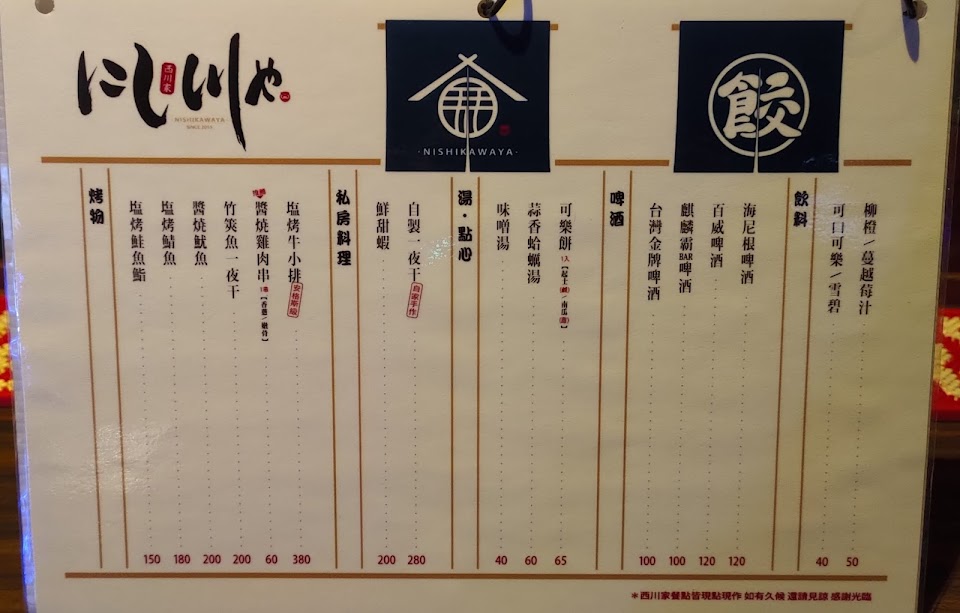 にし川や
西川家
NISHIKAWAYA
SINCE 2013
·NISHIKAWAYA·
餃
烤物
塩烤鮭魚鮨 150
塩烤鯖魚 180
醬燒魷魚 200
竹筴魚一夜干 200
醬燒雞肉串 60
塩烤牛小排 安格斯級 380
私房料理
鮮甜蝦 200
自製一夜干 自家手作 280
湯·點心
味噌湯 40
蒜香蛤蠣湯 60
可樂餅 65
啤酒
台灣金牌啤酒 100
麒麟霸BAR啤酒 100
百威啤酒 120
海尼根啤酒 120
飲料
可口可樂/雪碧 40
柳橙/蔓越莓汁 50
*西川家餐點皆現點現作 如有久候 還請見諒 感謝光臨